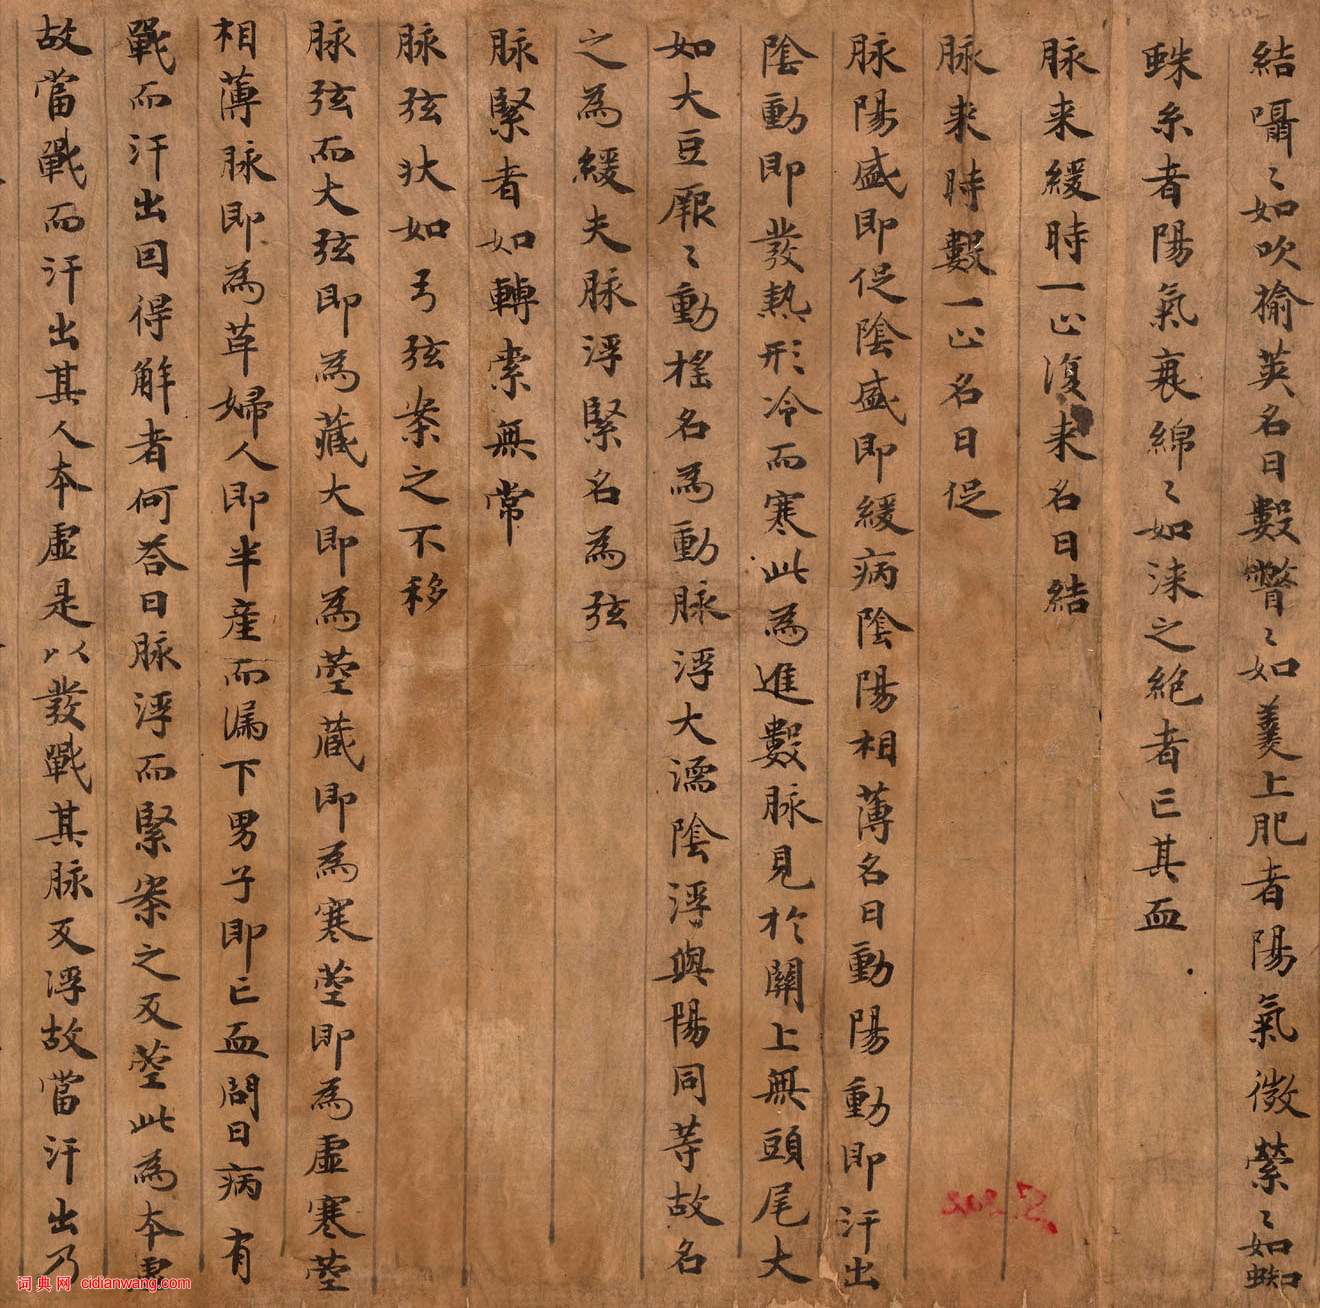 結囁〻如吹揄莢名曰數瞥〻如羹上肥者陽氣微縈〻如蜘
蛛糸者陽氣衰綿〻如涑之絶者亡其血
脉来緩時一止復来名曰結
脉来時數一止名曰促
脉陽盛即促陰盛即緩病陰陽相薄名曰動陽動即汗出
陰動即發熱形冷而寒此為進數脉見於關上無頭尾大
如大豆厥〻動搖名為動脉浮大濡陰浮與陽同等故名
之為緩夫脉浮緊名為弦
脉緊者如轉索無常
脉弦状如弓弦案之不移
脉弦而大弦即為藏大即為莖藏即為寒莖即為虛寒莖
相薄脉即為革婦人即半産而漏下男子即亡血問曰病有
戰而汗出因得解者何答曰脉浮而緊案之反莖此為本虛
故當戰而汗出其人本虛是以發戰其脉反浮故當汗出乃
词典网 cidianwang.com